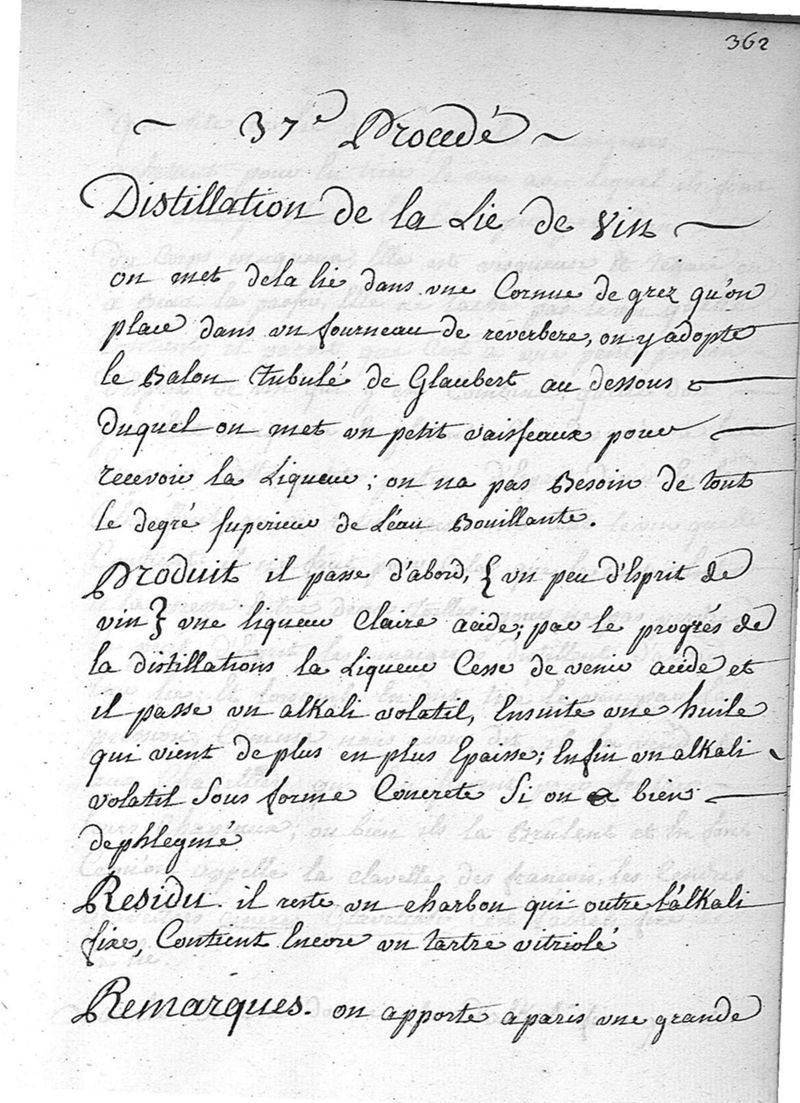 362
~ 37e Procedé ~
Distillation de la Lie de Vin
on met dela lie dans une Cornue de grez qu'on
place dans un fourneau de reverbere, on y adopte
le Balon Tubulé de Glaubert au dessous
duquel on met un petit vaisseaux pour
recevoir la Liqueur ; on na pas Besoin de tout
le degré superieur de L'eau Bouillante.
Produit il passe d'abord, { un peu d'Esprit de
vin } une liqueur Claire acide ; par le progrés de
la distillations la Liqueur Cesse de venir acide et
il passe un alkali volatil, Ensuite une huile
qui vient de plus en plus Epaisse ; Enfin un alkali
volatil sous forme Concrete Si on a bien
dephlegmé
Residu. il reste un charbon qui outre l'alkali
fixe, Contient Encore un tartre vitriolé
Remarques. on apporte a paris une grande